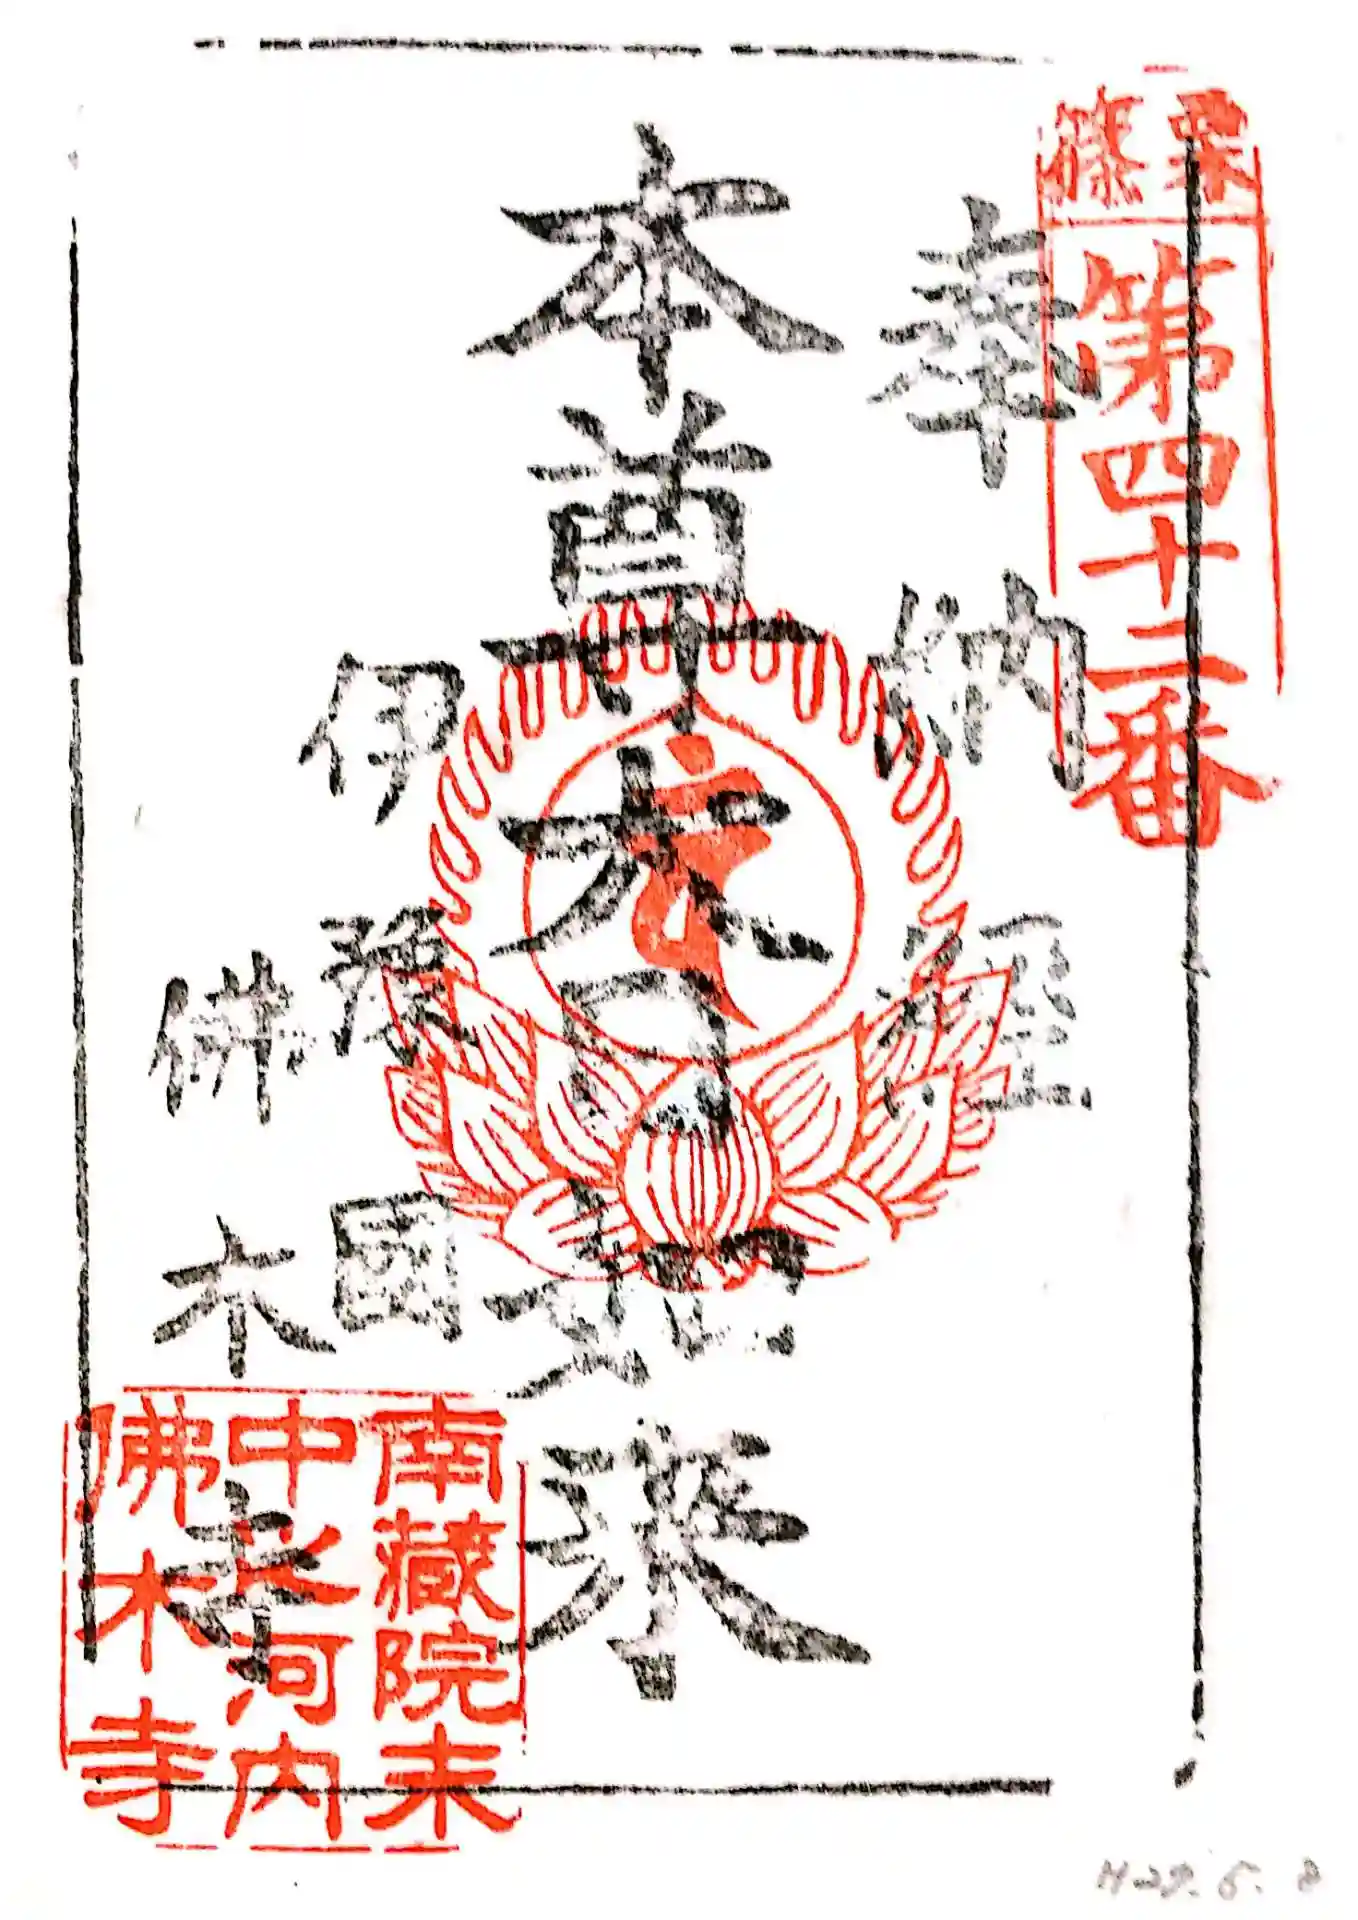 篠栗
第四十二番
奉納經
本尊大日如來
伊豫國
佛木寺
南藏院末
中之河内
佛木寺